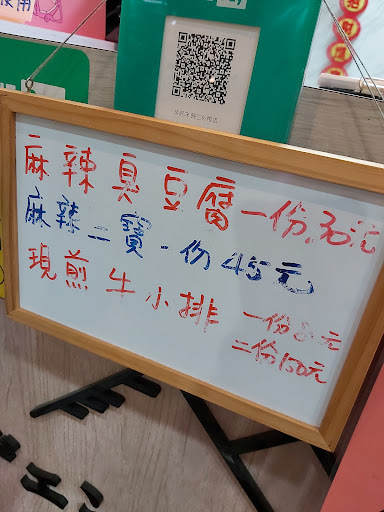 使用
麻辣臭豆腐一份30元
麻辣二寶一份45元
現煎牛小排一份80元
二份150元